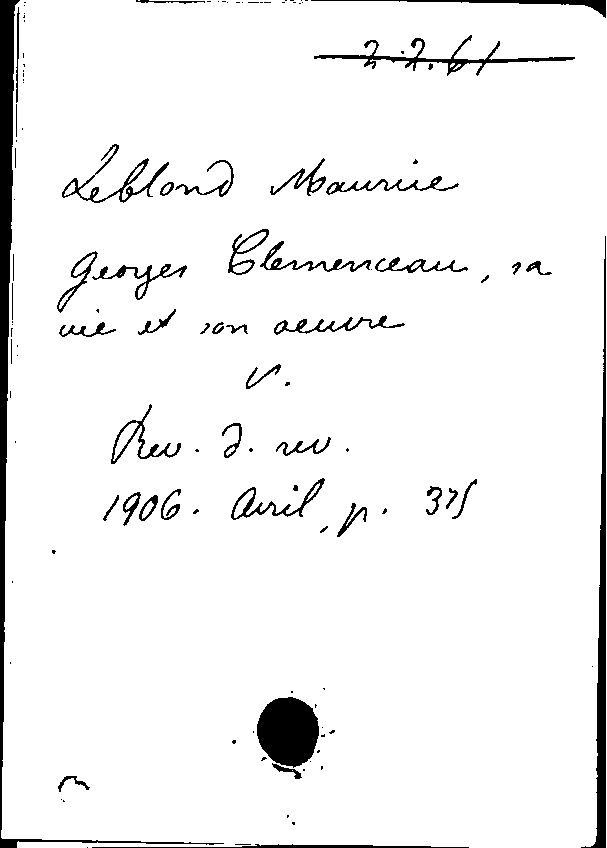 2.2.61
Leblond Maurice
Georges Clemenceau, sa
vie et son oeuvre
v.
Rev. d. rev.
1906. Avril, p. 375